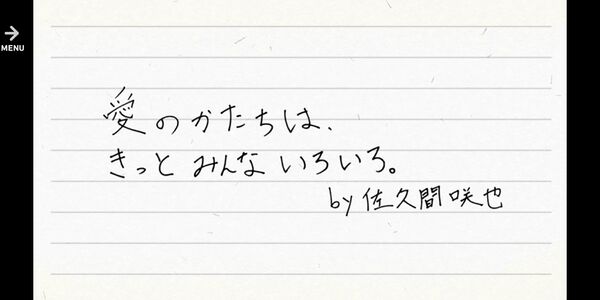 MENU
愛のかたちは、
きっと みんな いろいろ。
by 佐久間 咲也